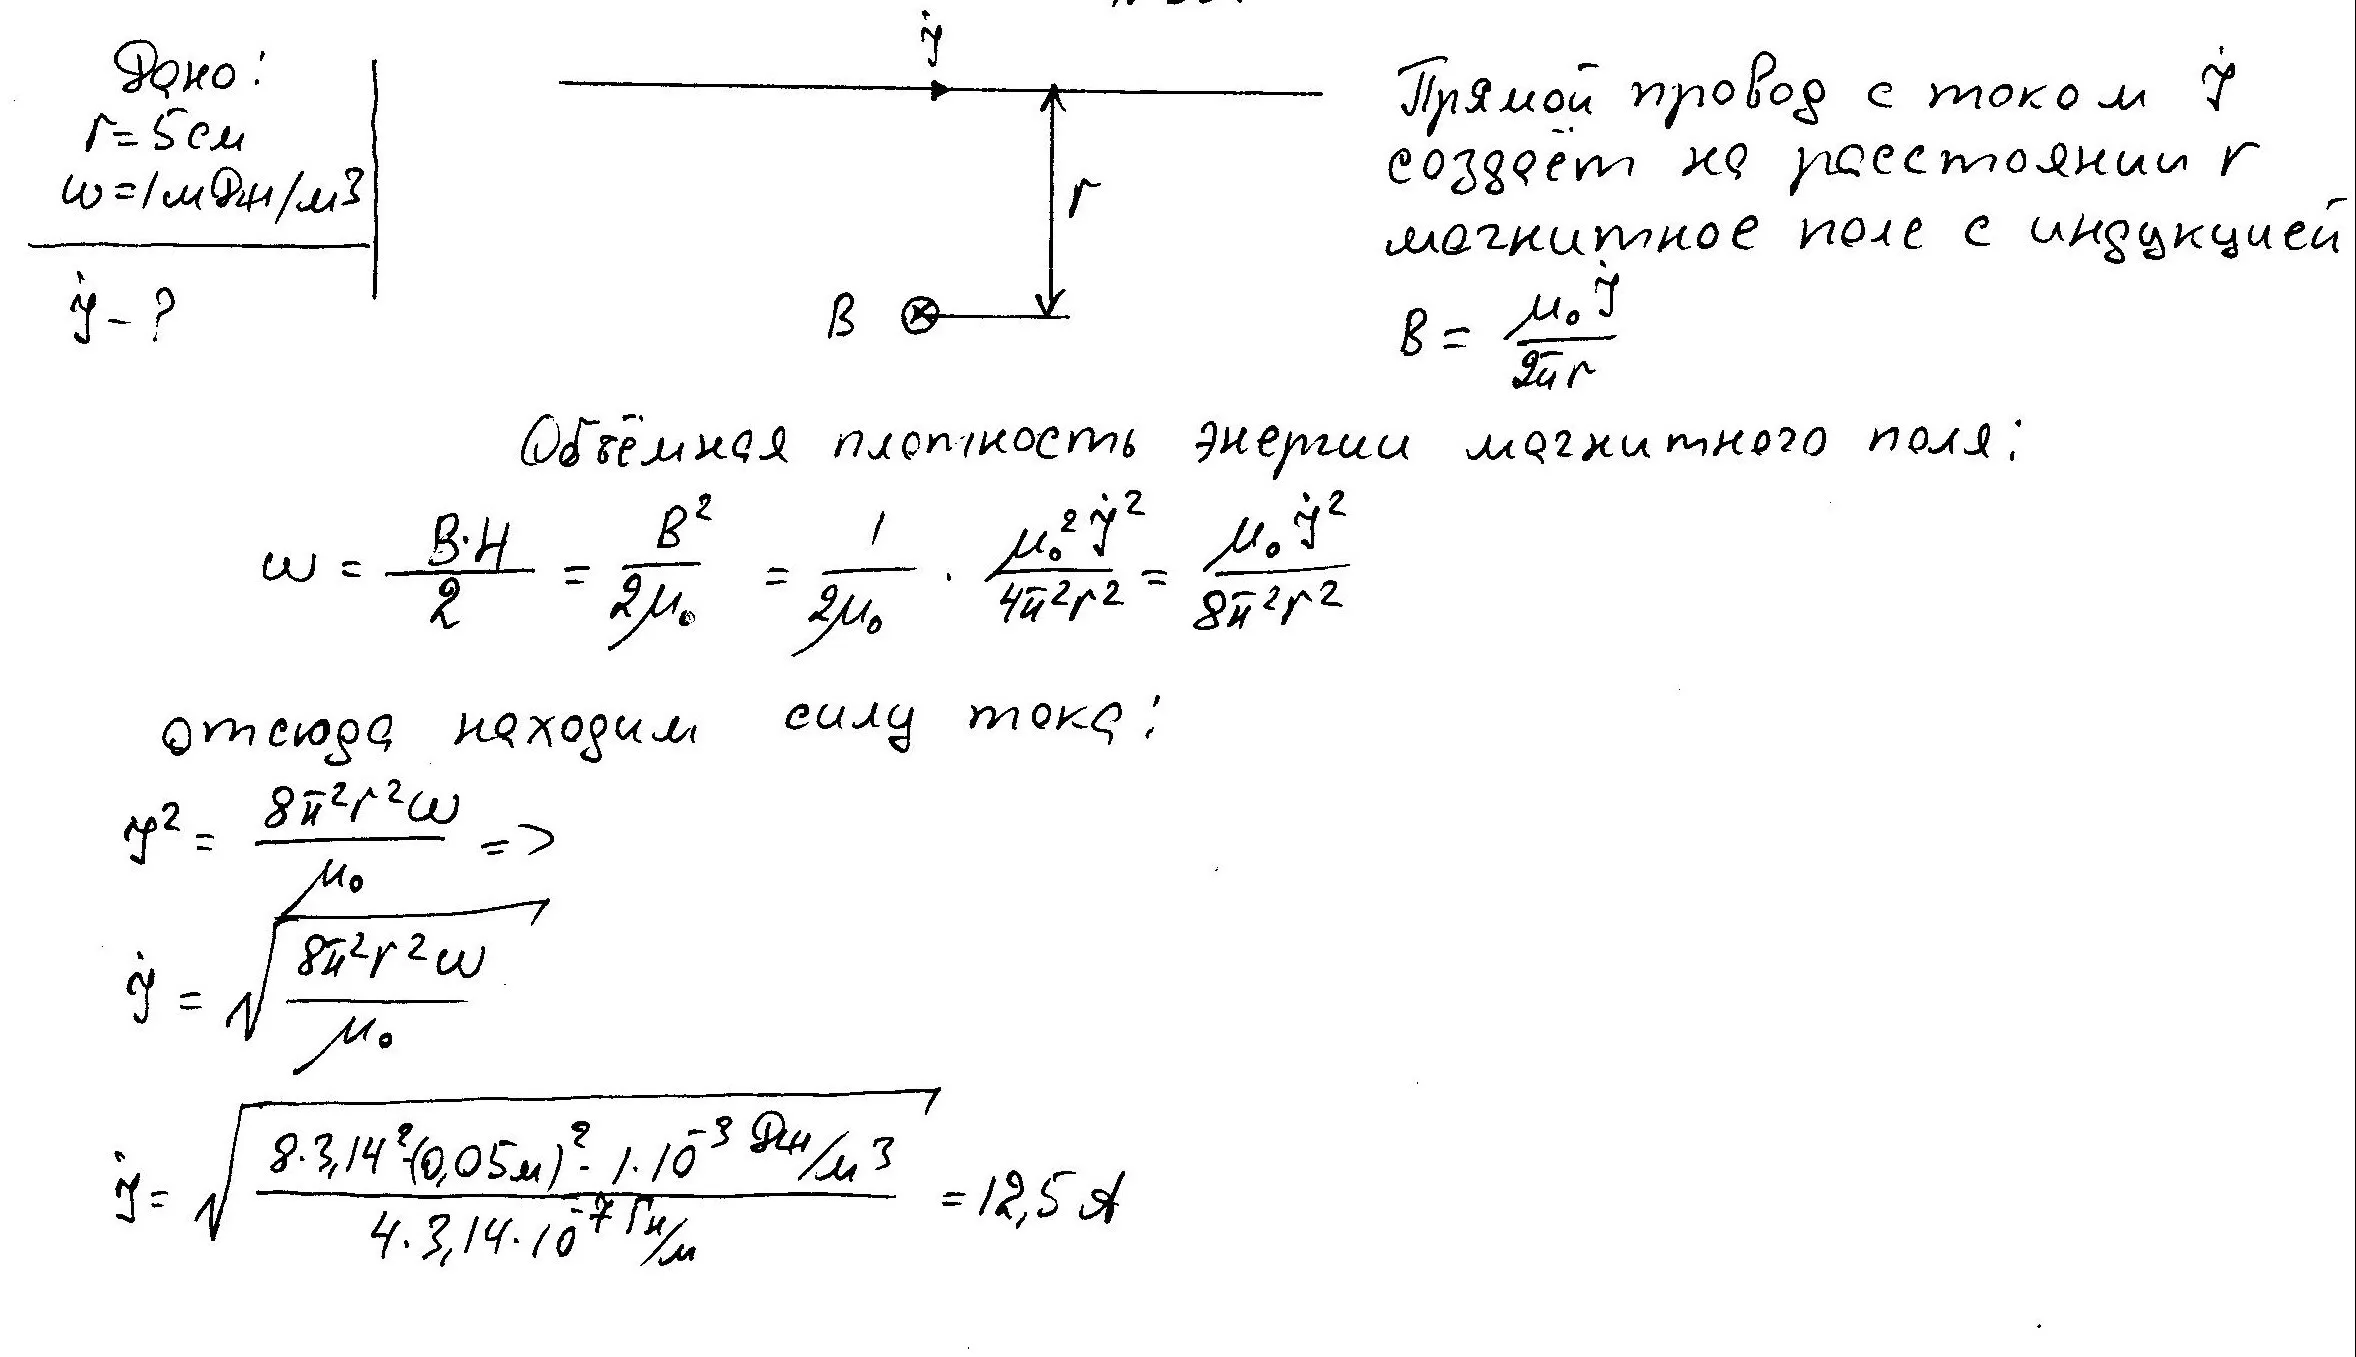 Дано:
r = 5 см
w = 1 мДж/м3
J - ?
J
r
B
Прямой провод с током J
создаёт на расстоянии r
магнитное поле с индукцией
B = μ₀J / 2πr
Объёмная плотность энергии магнитного поля:
w = B·H / 2 = B² / 2μ₀ = 1 / 2μ₀ · μ₀²J² / 4π²r² = μ₀J² / 8π²r²
отсюда находим силу тока:
J² = 8π²r²w / μ₀ =>
J = √(8π²r²w / μ₀)
J = √(8·3,14²·(0,05м)²·1·10⁻³ Дж/м3 / 4·3,14·10⁻⁷ Гн/м) = 12,5 А